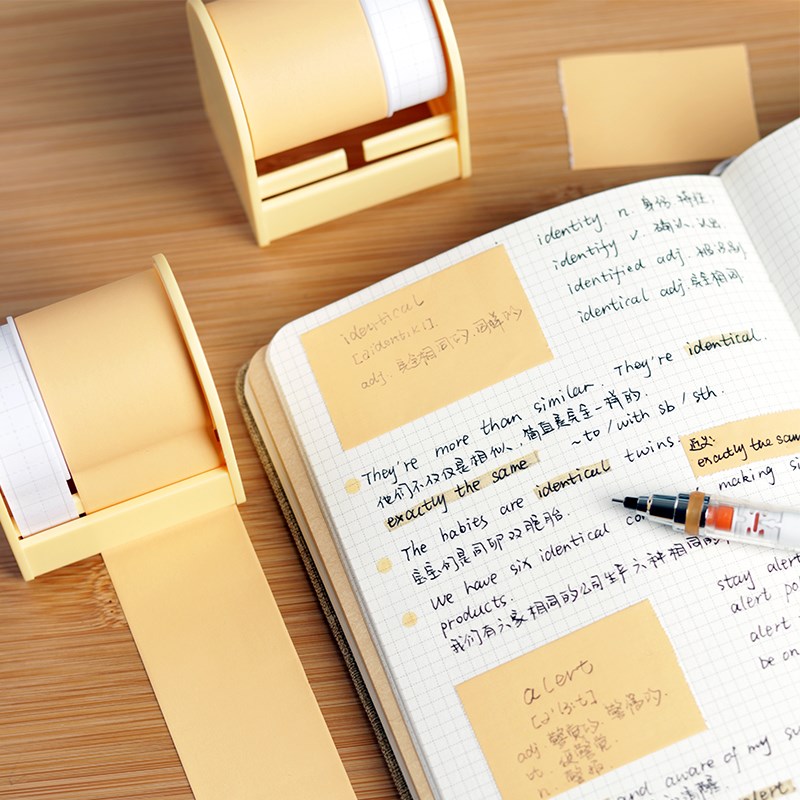 identity. n. 身份.特征.
identify v. 确认.认出
identified adj. 被识别
identical adj. 完全相同
identical
[aɪˈdentɪkl].
adj. 完全相同的.同样的
They're more than similar. They're identical.
他们不仅仅是相似,简直是完全一样的.
exactly the same ~to / with sb / sth.
近义:
exactly the sam
The babies are identical twins.
宝宝们是同卵双胞胎.
We have six identical making si
products.
我们有六家相同的公司生产六种相同的
stay alert
alert po
alert
be on
alert
[əˈlɜːt]
adj 警觉的.警惕的.
vt.
n. 警报
and aware of my su
alert.